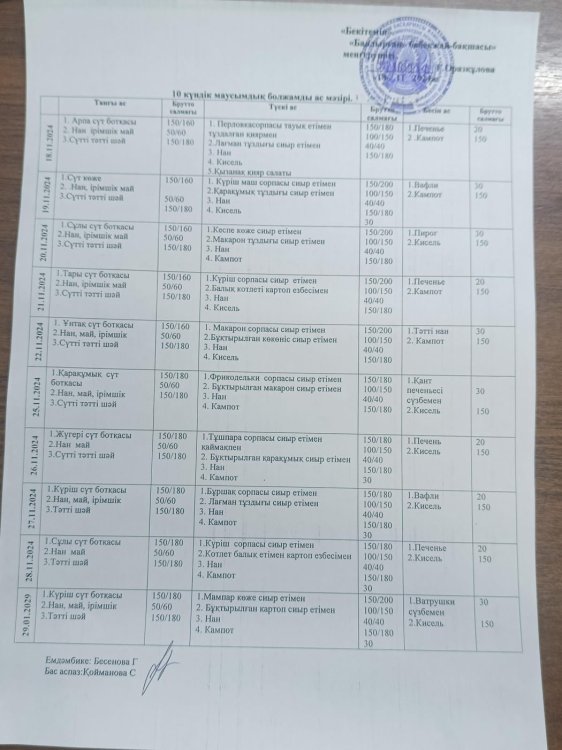 «Бекітемін»
«Балдырған» бөбекжай-бақшасы»
меңгерушісі
Оразқулова
10 күндік маусымдық болжамды ас мәзірі.
Таңғы ас Брутто салмағы Түскі ас Брутто салмағы Бесін ас Брутто салмағы
18.11.2024
1. Арпа сүт боткасы
2. Нан ірімшік май
3.Сүтті тәтті шәй
150/160
50/60
150/180
1. Перловкасорпасы тауық етімен
тұздалған қиярмен
2.Лағман тұздығы сиыр етімен
3. Нан
4. Кисель
5.Қызанақ қияр салаты
150/180
100/150
40/40
150/180
1.Печенье
2 .Кампот
20
150
19.11.2024
1.Сүт көже
2. Нан, ірімшік май
3.Сүтті тәтті шәй
150/160
50/60
150/180
1. Күріш маш сорпасы сиыр етімен
2.Қарақұмық тұздығы сиыр етімен
3. Нан
4. Кисель
150/200
100/150
40/40
150/180
30
1.Вафли
2.Кампот
30
150
20.11.2024
1.Сұлы сүт боткасы
2.Нан, ірімшік май
3.Сүтті тәтті шәй
150/160
50/60
150/180
1.Коспе көже сиыр етімен
2.Макарон тұздығы сиыр етімен
3. Нан
4. Кампот
150/200
100/150
40/40
150/180
1.Пирог
2.Кисель
30
150
21.11.2024
1.Тары сүт боткасы
2.Нан, ірімшік май
3.Сүтті тәтті шәй
150/160
50/60
150/180
1.Күріш сорпасы сиыр етімен
2.Балық котлеті картоп езбесімен
3. Нан
4. Кампот
150/200
100/150
40/40
150/180
1.Печенье
2.Кампот
20
150
22.11.2024
1. Ұнтақ сүт боткасы
2.Нан, май, ірімшік
3.Сүтті тәтті шәй
150/160
50/60
150/180
1. Макарон сорпасы сиыр етімен
2.Бұктырылған көкөніс сиыр етімен
3. Нан
4. Кисель
150/200
100/150
40/40
150/180
1.Тәтті нан
2. Кампот
30
150
25.11.2024
1.Қарақұмық сүт
боткасы
2.Нан, май, ірімшік
3.Сүтті тәтті шәй
150/180
50/60
150/180
1.Фрикодельки сорпасы сиыр етімен
2. Бұктырылған макарон сиыр етімен
3. Нан
4. Кампот
150/180
100/150
40/40
150/180
1.Қант
печеньесі
сүзбемен
2.Кисель
30
150
26.11.2024
1.Жүгері сүт боткасы
2.Нан май
3.Сүтті тәтті шәй
150/180
50/60
150/180
1.Тұшпара сорпасы сиыр етімен
каймакпен
2. Бұктырылған қарақұмық сиыр етімен
3. Нан
4. Кампот
150/180
100/150
40/40
150/180
30
1.Печень
2.Кисель
20
150
27.11.2024
1.Күріш сүт боткасы
2.Нан, май, ірімшік
3.Тәтті шәй
150/180
50/60
150/180
1.Бұршақ сорпасы сиыр етімен
2. Лағман тұздығы сиыр етімен
3. Нан
4. Кампот
150/180
100/150
40/40
150/180
30
1.Вафли
2.Кисель
20
150
28.11.2024
1.Сұлы сүт боткасы
2.Нан май
3.Тәтті шәй
150/180
50/60
150/180
1.Күріш сорпасы сиыр етімен
2.Котлет балық етімен картоп езбесімен
3. Нан
4. Кампот
150/180
100/150
40/40
150/180
30
1.Печенье
2.Кисель
20
150
29.01.2029
1.Күріш сүт боткасы
2.Нан, май, ірімшік
3.Тәтті шәй
150/180
50/60
150/180
1.Мампар көже сиыр етімен
2. Бұктырылған картоп сиыр етімен
3. Нан
4. Кампот
150/200
100/150
40/40
150/180
30
1.Ватрушки
сүзбемен
2.Кисель
30
150
Емдәмбике: Бесенова Г
Бас аспаз:Қойманова С